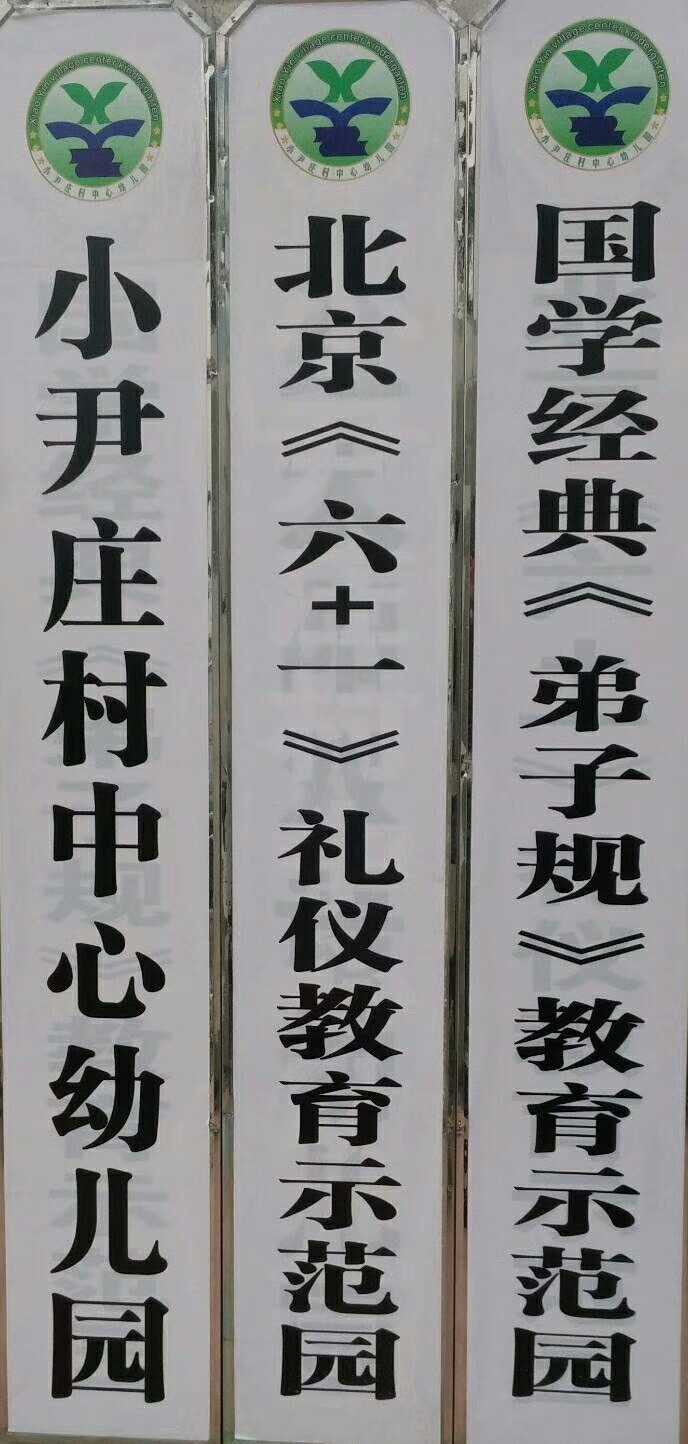 Xiao Yin village center kindergarten
小尹庄村中心幼儿园
小尹庄村中心幼儿园
Xiao Yin village center kindergarten
小尹庄村中心幼儿园
北京《六+一》礼仪教育示范园
Xiao Yin village center kindergarten
小尹庄村中心幼儿园
国学经典《弟子规》教育示范园